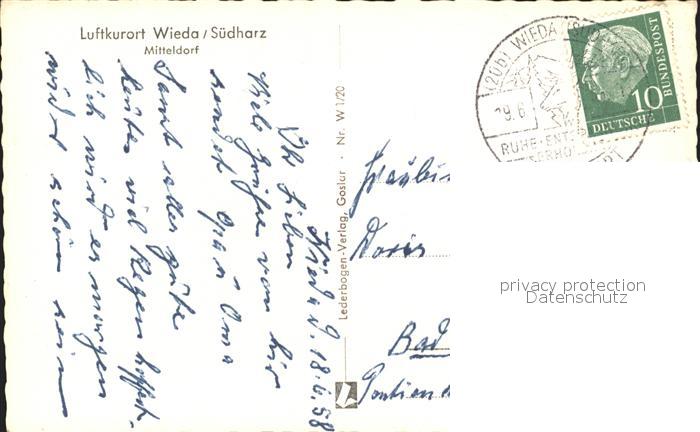 Luftkurort Wieda / Südharz
Mitteldorf
Wieda d. 18.6.58
Ihr Lieben
Viele Grüße von hier
sendet Opa u Oma
Samt alles gute
heute viel Regen hoffent-
lich wird es morgen
wieder schön sein
Lederbogen-Verlag, Goslar · Nr. W 1/20
Fräulein
Doris
Bad
(20b) WIEDA (SÜD
19.6.
RUHE-ENT
ERHOL
10
DEUTSCHE
BUNDESPOST
privacy protection
Datenschutz